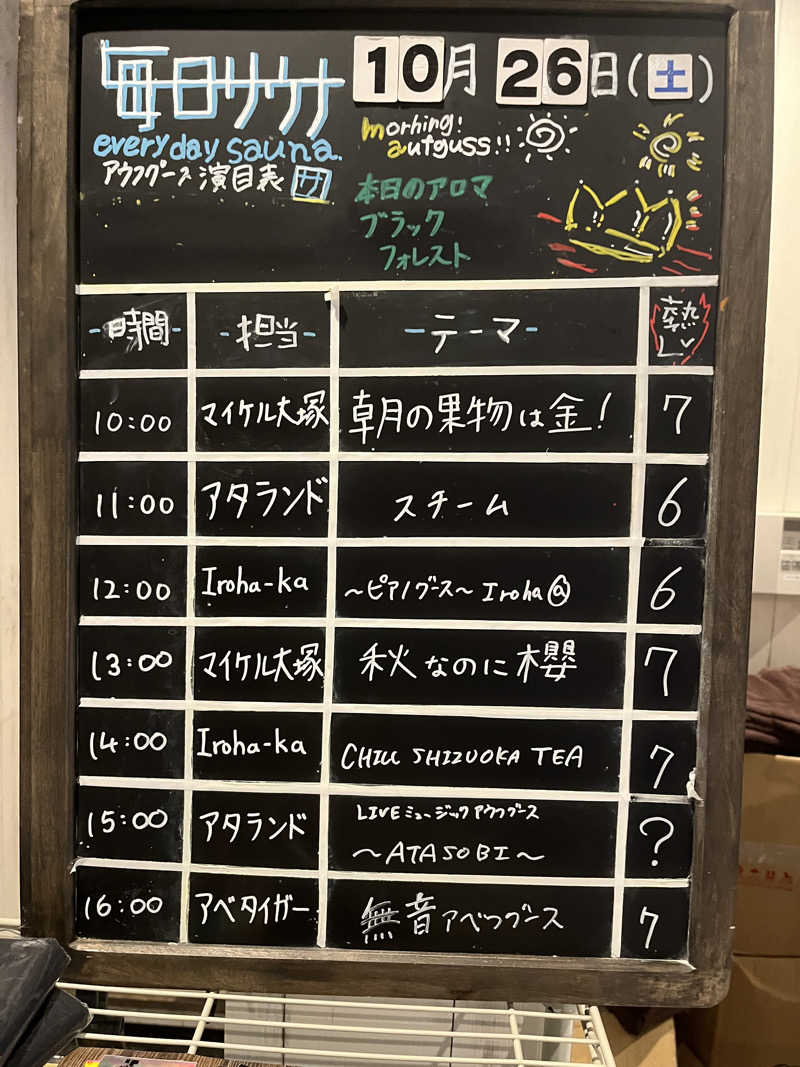 毎日サウナ
10月26日(土)
everyday sauna.
アウフグース演目表 サ
morhing!
aufguss!!
本日のアロマ
ブラック
フォレスト
-時間- -担当- -テーマ- 熱Lv
10:00 マイケル大塚 朝月の果物は金! 7
11:00 アタランド スチーム 6
12:00 Iroha-ka ~ピアノグース~ Iroha@ 6
13:00 マイケル大塚 秋なのに櫻 7
14:00 Iroha-ka CHILL SHIZUOKA TEA 7
15:00 アタランド LIVEミュージックアウフグース ?
~ATASOBI~
16:00 アベタイガー 無音アベつグース 7